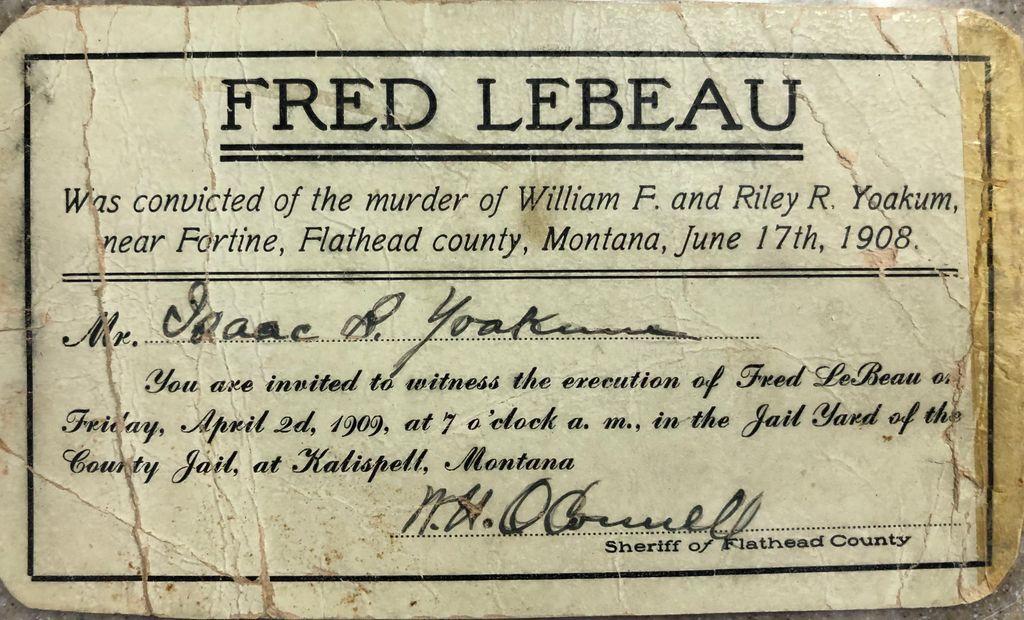 FRED LEBEAU
Was convicted of the murder of William F. and Riley R. Yoakum,
near Fortine, Flathead county, Montana, June 17th, 1908.
Mr. Isaac R. Yoakum
You are invited to witness the execution of Fred LeBeau on
Friday, April 2d, 1909, at 7 o'clock a. m., in the Jail Yard of the
County Jail, at Kalispell, Montana
W.H. O'Connell
Sheriff of Flathead County